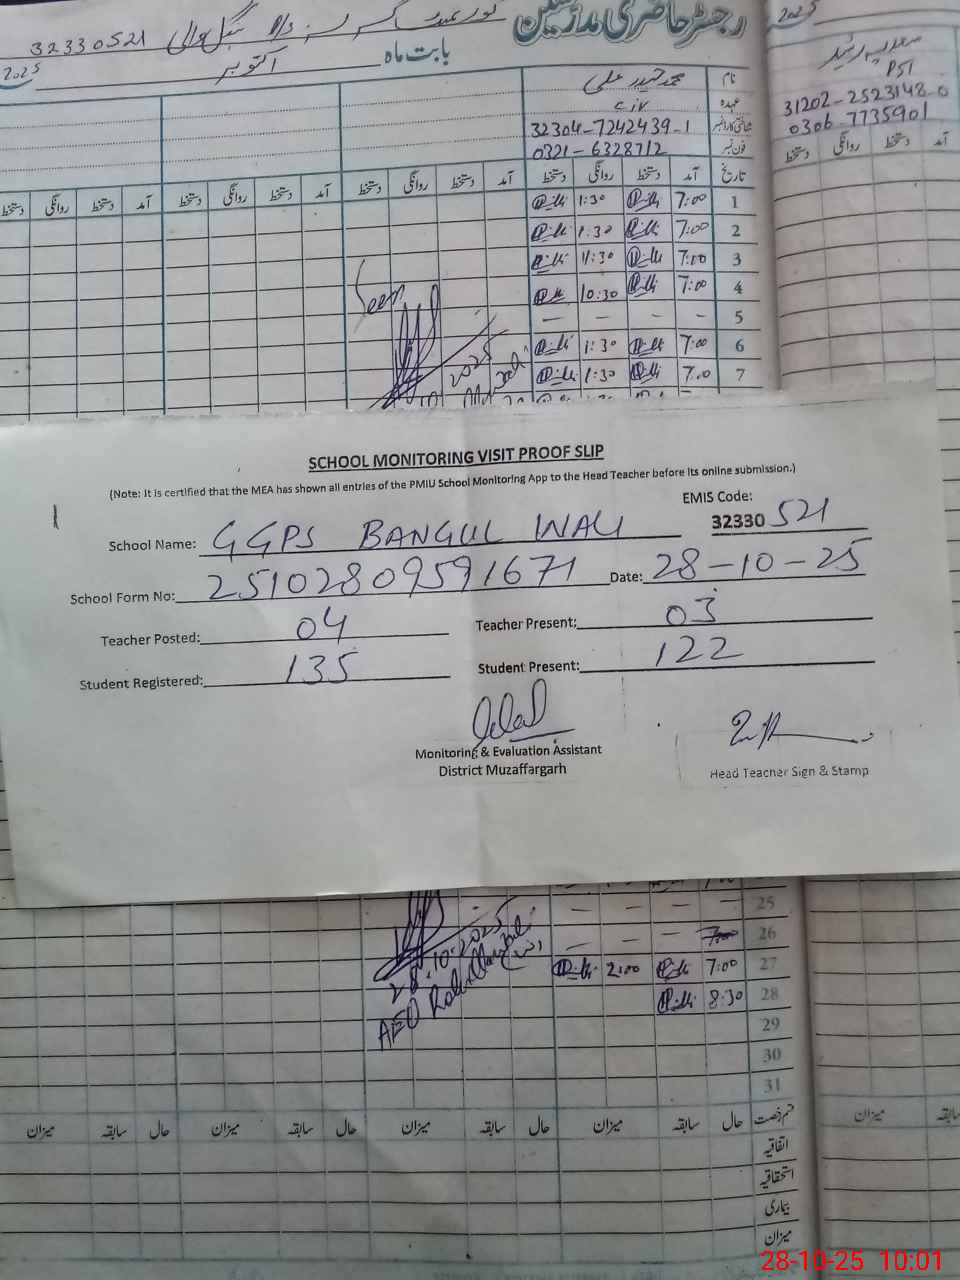 32330521
2025
رجسٹر حاضری مدرسین
بابت ماہ اکتوبر 2025
نام محمد حیدر علی
عہدہ C-IV
شناختی کارڈ نمبر 32304-7242439-1
فون نمبر 0321-6328712
PST
31202-2523148-0
0306-7735901
تاریخ آمد دستخط روانگی دستخط آمد دستخط روانگی دستخط آمد دستخط روانگی دستخط
آمد دستخط روانگی دستخط
1 7:00 1:30
2 7:00 1:30
3 7:00 11:30
4 7:00 10:30
5 — — — —
6 7:00 1:30
7 7:00 1:30
Seen
2025
SCHOOL MONITORING VISIT PROOF SLIP
(Note: It is certified that the MEA has shown all entries of the PMIU School Monitoring App to the Head Teacher before its online submission.)
EMIS Code:
School Name: GGPS BANGUL WALI 32330 521
School Form No: 25102809591671 Date: 28-10-25
Teacher Posted: 04 Teacher Present: 03
Student Registered: 135 Student Present: 122
Monitoring & Evaluation Assistant
District Muzaffargarh
Head Teacher Sign & Stamp
25 — — — —
26 7:00 — — —
27 7:00 2:00
28 8:30
29
30
31
10-2025
AEO
قسم رخصت حال سابقہ میزان حال سابقہ میزان حال سابقہ میزان حال سابقہ میزان
سابقہ میزان
اتفاقیہ
استحقاقیہ
بیماری
میزان
28-10-25 10:01